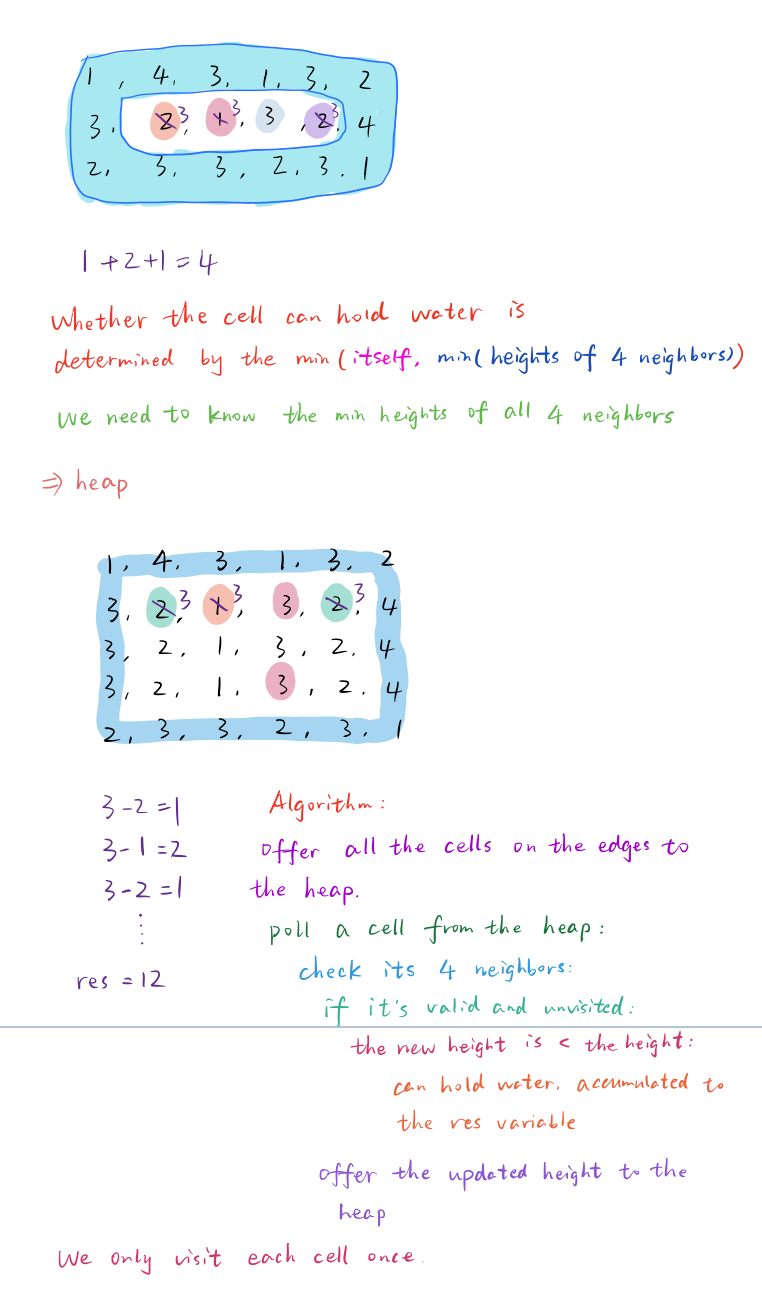 1, 4, 3, 1, 3, 2
3, 2 3, 1 3, 3, 2 3, 4
2, 3, 3, 2, 3. 1
1+2+1=4
Whether the cell can hold water is
determined by the min (itself, min( heights of 4 neighbors))
We need to know the min heights of all 4 neighbors
⇒ heap
1, 4, 3, 1, 3, 2
3, 2 3, 1 3, 3, 2 3, 4
3, 2, 1, 3, 2, 4
3, 2, 1, 3, 2. 4
2, 3, 3, 2, 3. 1
3-2=1
3-1=2
3-2=1
⋮
res =12
Algorithm:
offer all the cells on the edges to
the heap.
poll a cell from the heap:
check its 4 neighbors:
if it's valid and unvisited:
the new height is < the height:
can hold water, accumulated to
the res variable
offer the updated height to the
heap
We only visit each cell once.